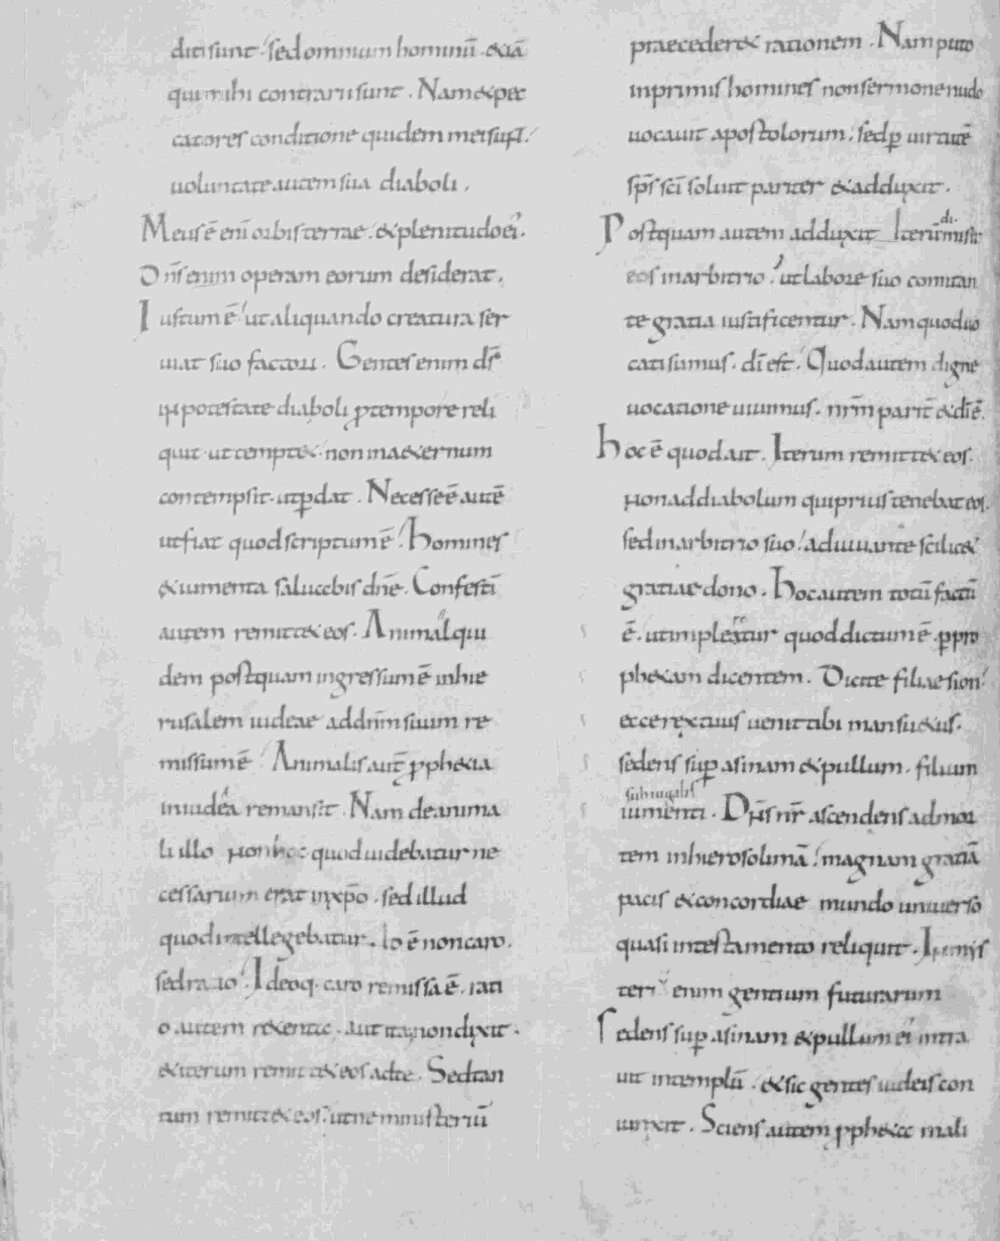 diti sunt. sed omnium hominū. & iā
qui mihi contrarii sunt. Nam & pec
catores conditione quidem mei sunt.
uoluntate autem sua diaboli.
Meus ē eni orbis terrae. & plenitudo eī.
Dn̄s enim operam eorum desiderat.
Iustum ē ut aliquando creatura ser
uiat suo factori. Gentes enim dī
in potestate diaboli ꝓ tempore reli
quit. ut tempt&. non in aeternum
contempsit. ut ꝑdat. Necesse ē autē
ut fiat quod scriptum ē. Homines
& iumenta saluabis dn̄e. Confestī
autem remitt& eos. Animal qui
dem postquam ingressum ē inhie
rusalem iudeae ad dn̄m suum re
missum ē. Animalis aut̄ ꝓph&ia
in iudea remansit. Nam de anima
li illo non hoc quod uidebatur ne
cessarium erat in xp̄o. sed illud
quod intellegebatur. Io ē non caro.
sed ratio. Ideoq. caro remissa ē. rati
o autem r&enta. aut ita non dixit.
& iterum remitt& eos ad te. Sed tan
tum remitt& eos. ut ne ministeriū
praeceder& rationem. Nam puto
inprimis homines non sermone nudo
uocauit apostolorum. sed ꝑ uirtutē
sp̄s sc̄i soluit pariter & adduxit.
Postquam autem adduxit. Iterum dimisit
eos in arbitrio. ut labore suo comitan
te gratia iustificentur. Nam quod uo
cati sumus. dī est. Quod autem digne
uocatione uiuimus. nr̄m parit̄ & dī ē.
Hoc ē quod ait. Iterum remitt& eos.
non ad diabolum qui prius tenebat eos.
sed in arbitrio suo. adiuuante scilic&
gratiae dono. Hoc autem totū factū
ē. ut impleretur quod dictum ē. ꝑ pro
ph&am dicentem. Dicite filiae sion.
ecce rex tuus uenit tibi mansu&us.
sedens suꝑ asinam & pullum. filium
subiugalis
iumenti. Dn̄s nr̄ ascendens ad mor
tem inhierosolimā. magnam gratiā
pacis & concordiae mundo uniuerso
quasi in testamento reliquit. In mys
terī enim gentium futurarum
sedens suꝑ asinam & pullum eī intra
uit in templū. & sic gentes iudeis con
iunxit. Sciens autem ꝓph&a mali